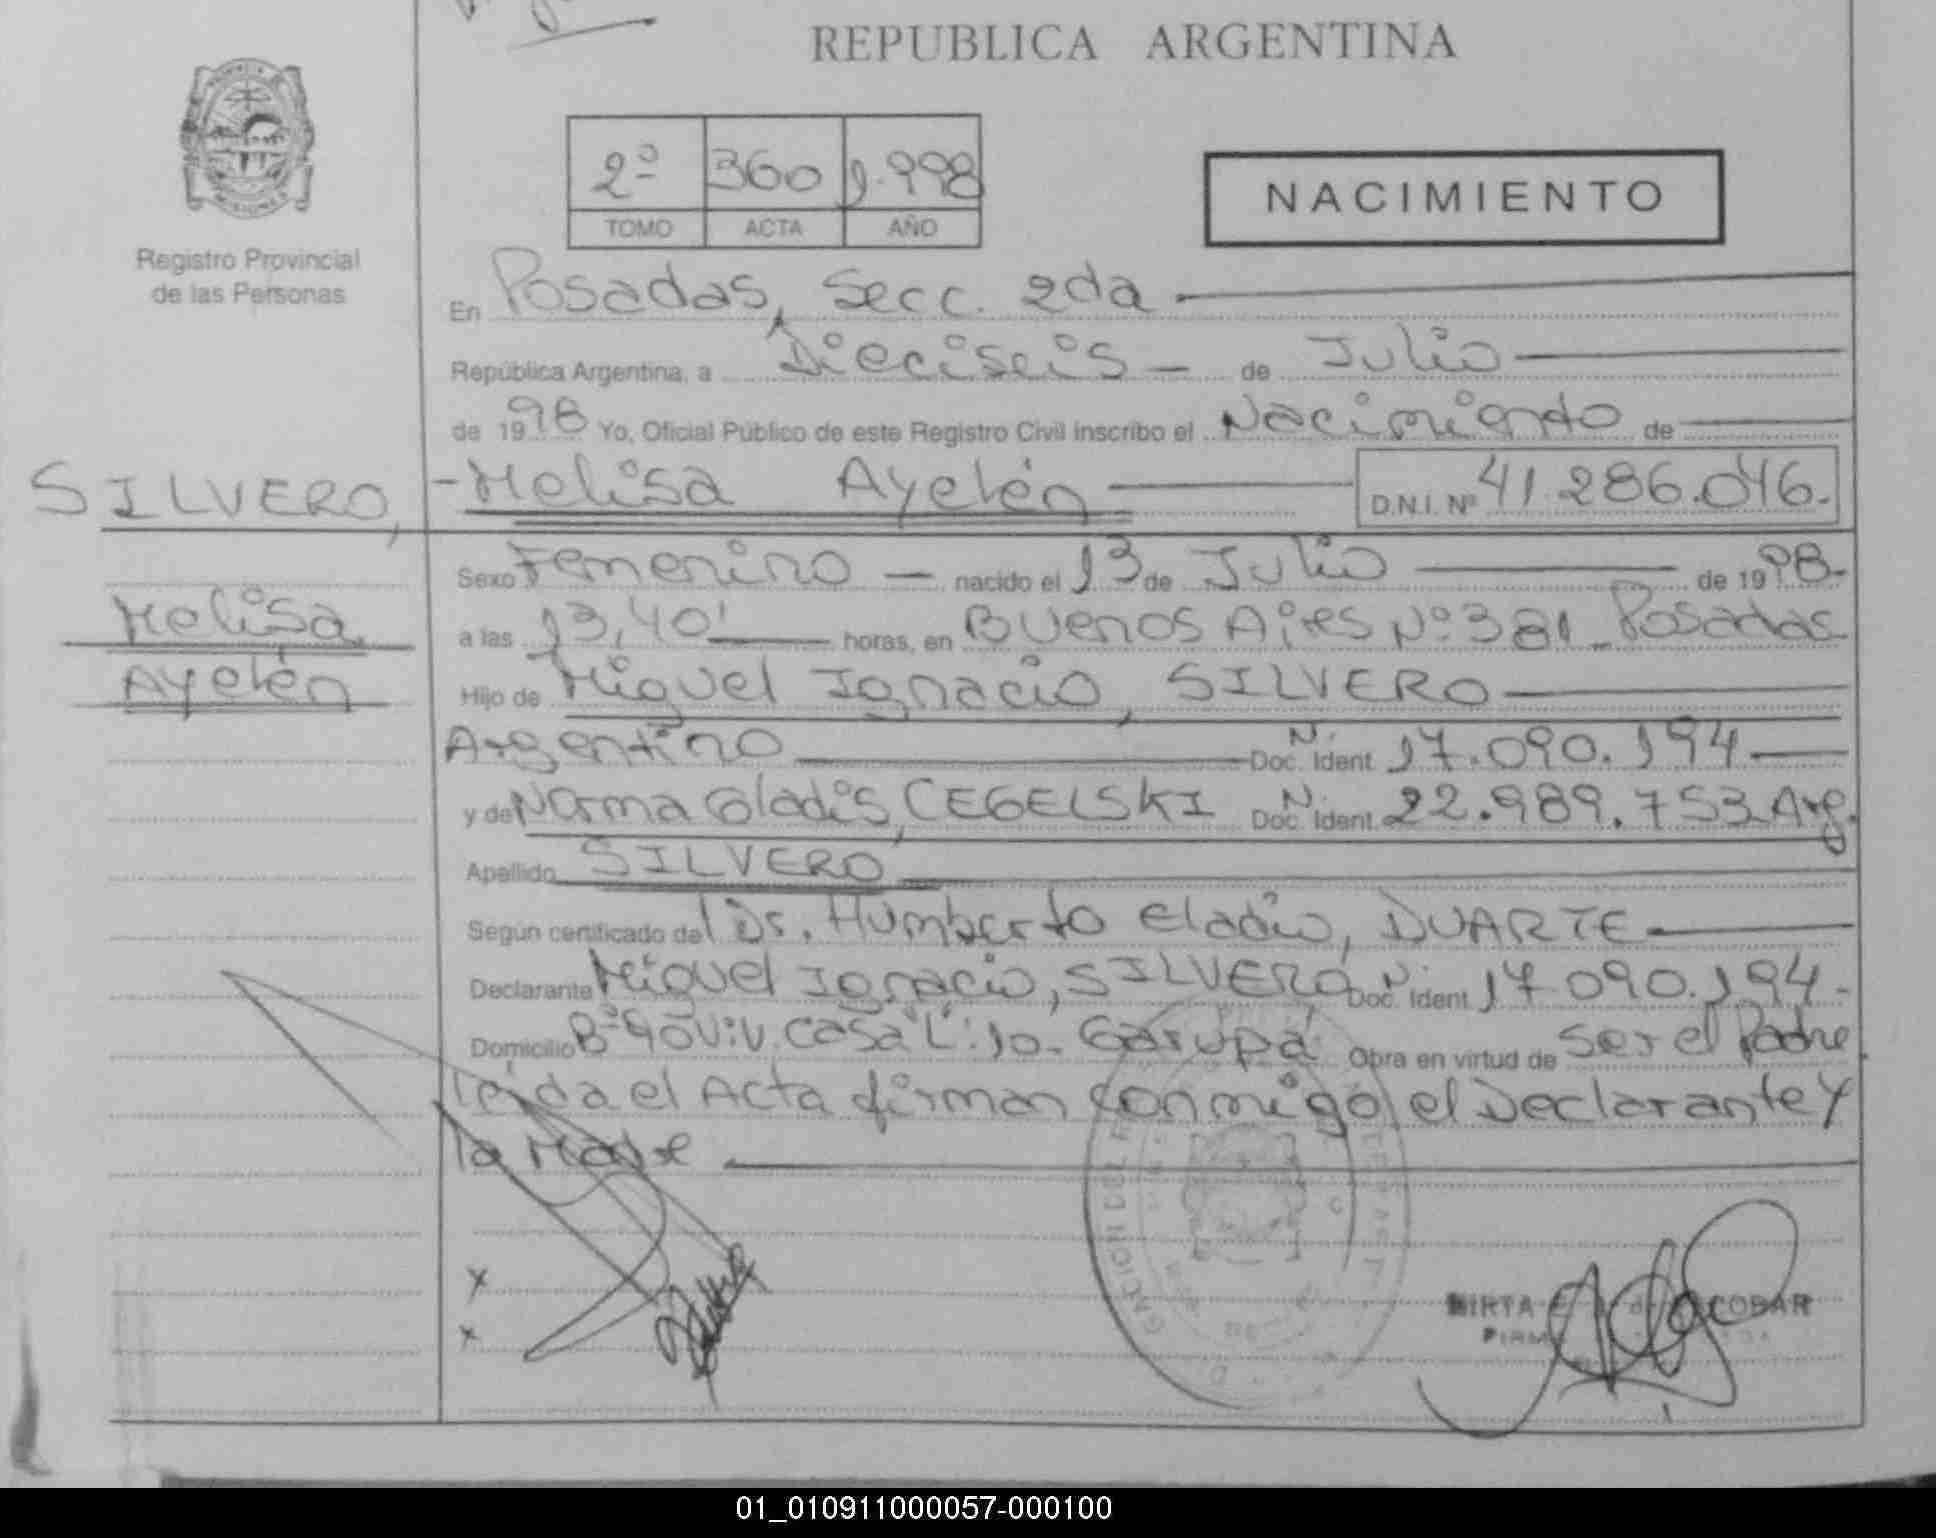 REPUBLICA ARGENTINA
PROVINCIA DE MISIONES
Registro Provincial
de las Personas
2º 360 1.998
TOMO ACTA AÑO
NACIMIENTO
En Posadas, Secc. 2da
República Argentina, a Dieciseis - de Julio
de 1998 Yo, Oficial Público de este Registro Civil inscribo el Nacimiento de
SILVERO, - Melisa Ayelén D.N.I. Nº 41.286.046.-
Melisa
Ayelén
Sexo Femenino - nacido el 13 de Julio de 1998.-
a las 13,40' horas, en Buenos Aires Nº 381 - Posadas
Hijo de Miguel Ignacio, SILVERO
Argentino Doc. Ident. N: 17.090.194
y de Norma Gladis, CEGELSKI Doc. Ident. N: 22.989.753 Arg.
Apellido SILVERO
Según certificado del Dr. Humberto Eladio, DUARTE
Declarante Miguel Ignacio, SILVERO Doc. Ident. N: 17.090.194.-
Domicilio Bº 90 Viv. Casa L: 10 - Garupá Obra en virtud de ser el Padre
leída el Acta firman conmigo el Declarante y
la Madre
x
x
MIRTA ESCOBAR
01_010911000057-000100